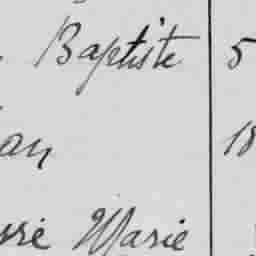 Baptiste 5
an 18
Marie